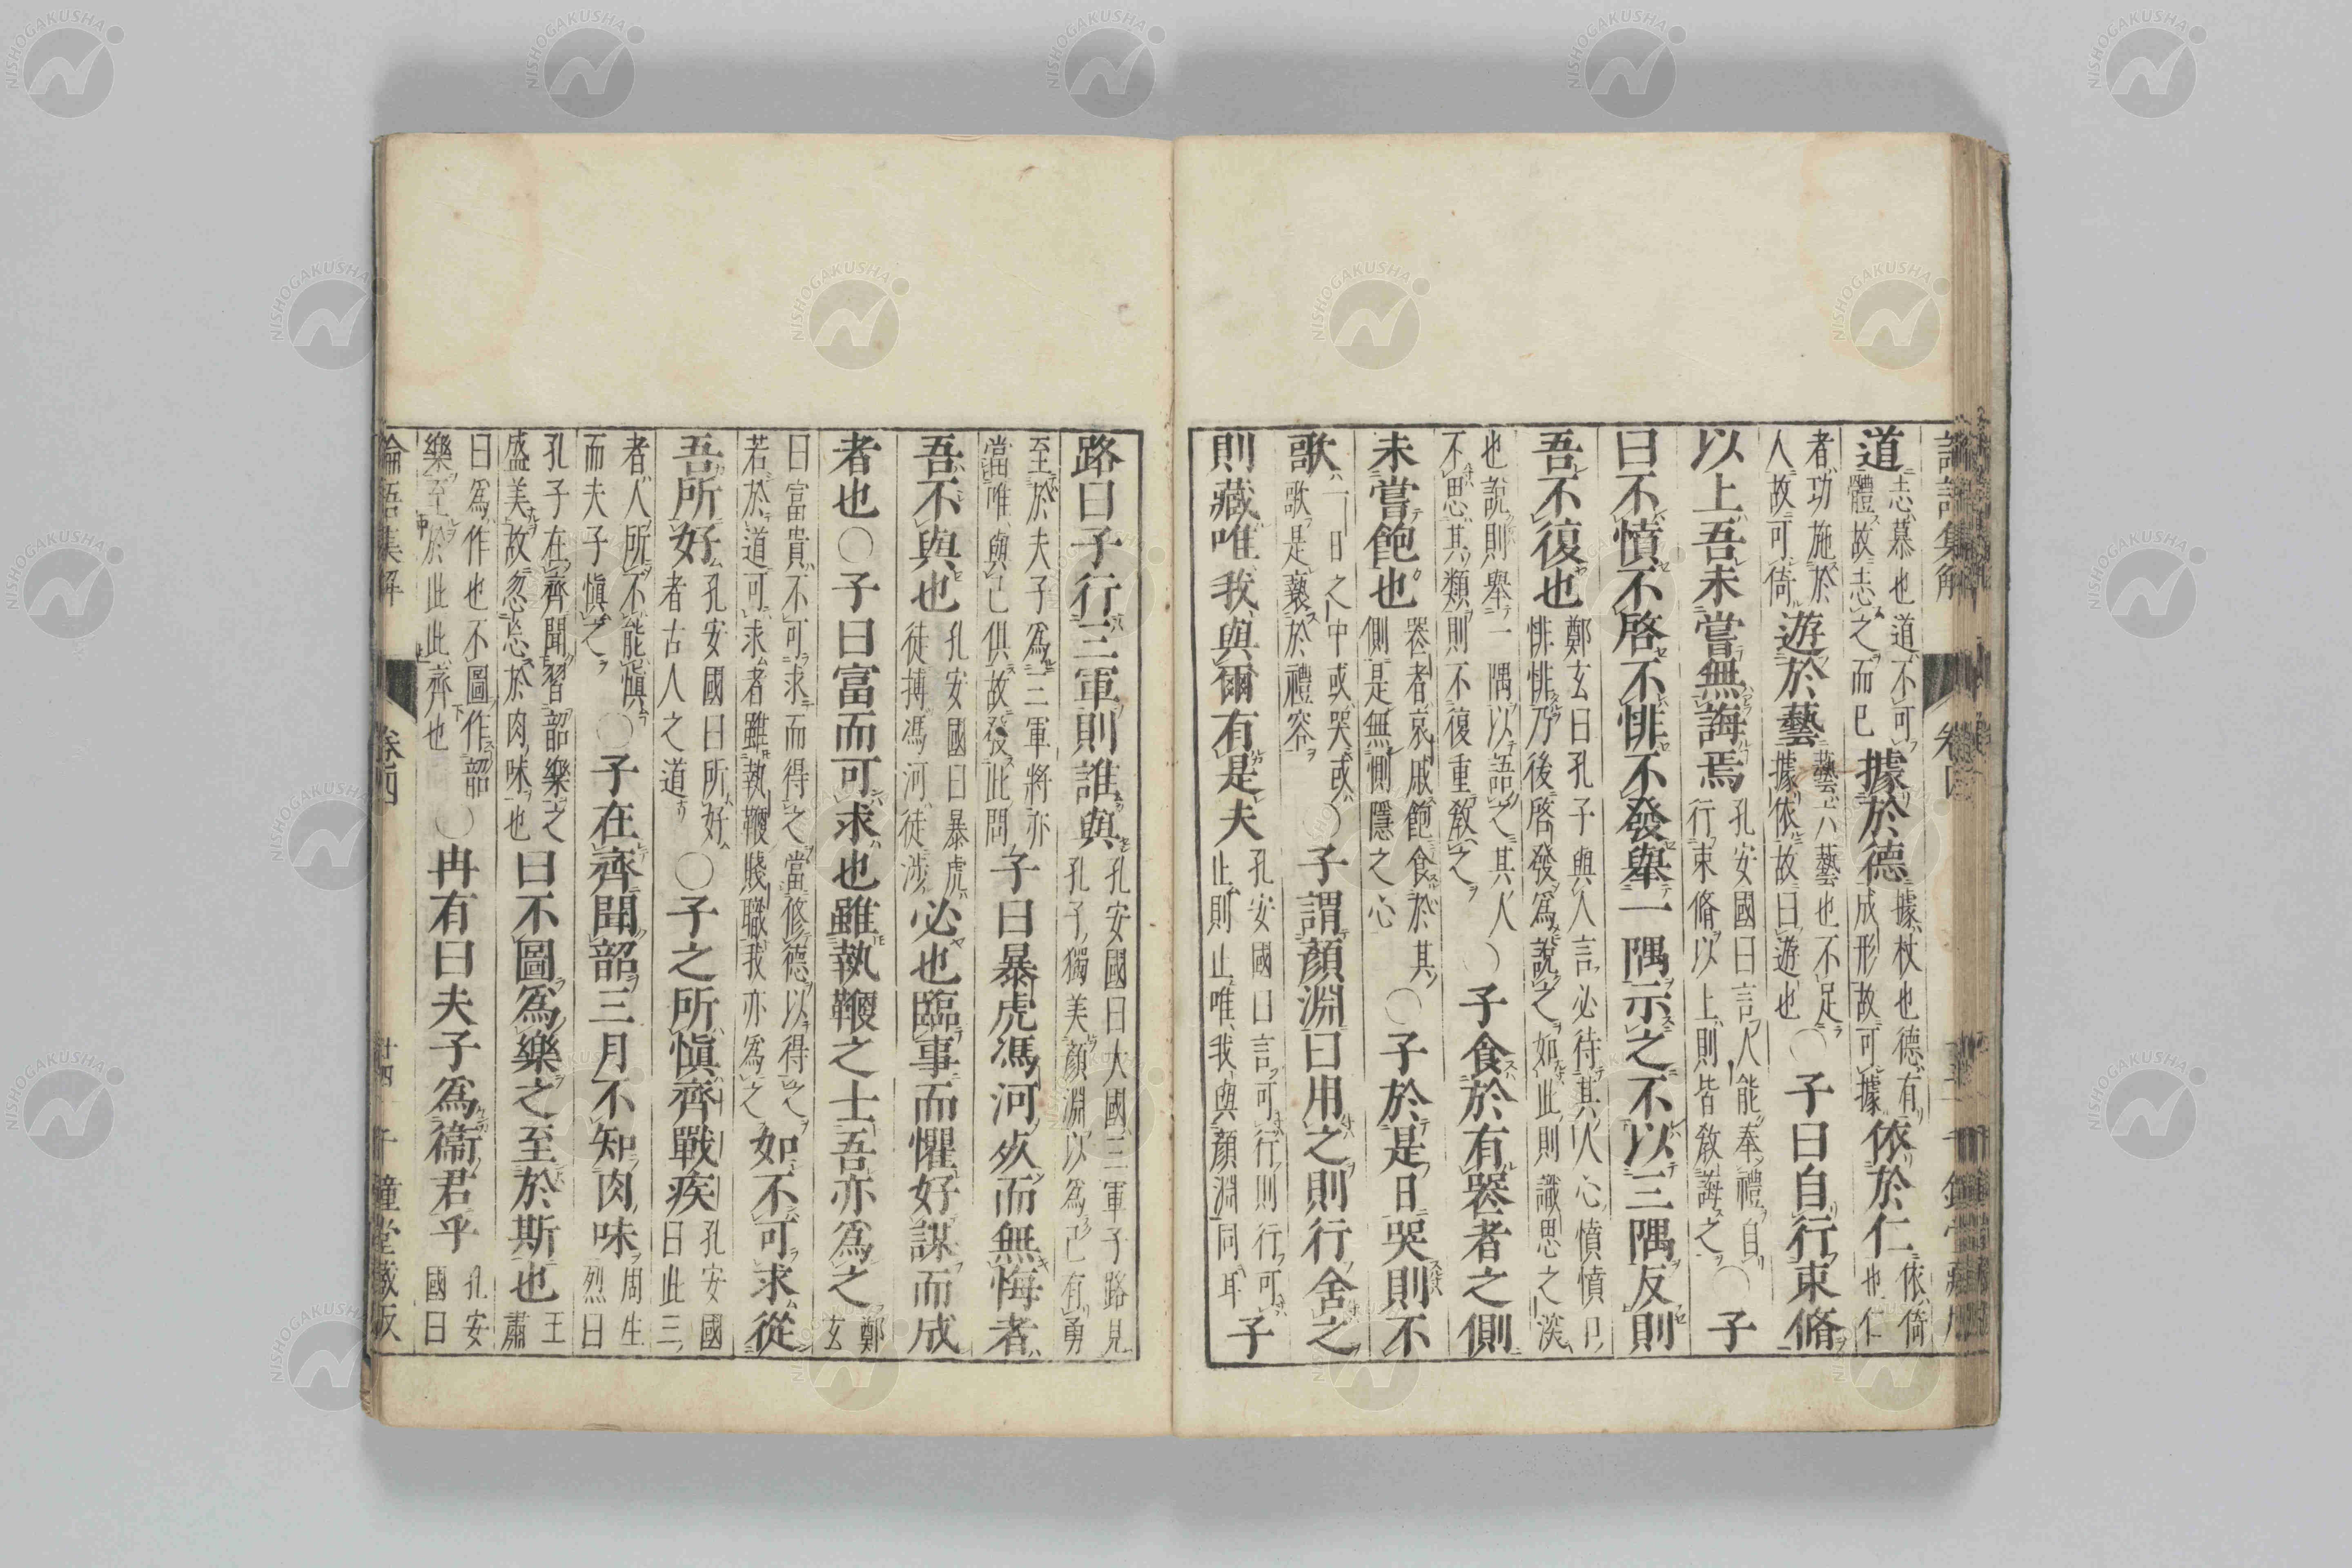 論語集解　卷四
道志慕也道不可體故志之而已據於德據杖也德有成形故可據依於仁依倚也仁
者功施於人故可倚遊於藝藝六藝也不足據依故曰遊也○子曰自行束脩
以上吾未嘗無誨焉孔安國曰言人能奉禮自行束脩以上則皆敎誨之○子
曰不憤不啓不悱不發舉一隅示之不以三隅反則
吾不復也鄭玄曰孔子與人言必待其人心憤憤口悱悱乃後啓發爲說之如此則識思之深
也說則舉一隅以語之其人不思其類則不復重敎之○子食於有喪者之側
未嘗飽也喪者哀戚飽食於其側是無惻隱之心○子於是日哭則不
歌一日之中或哭或歌是褻於禮容○子謂顏淵曰用之則行舍之
則藏唯我與爾有是夫孔安國曰言可行則行可止則止唯我與顏淵同耳子
路曰子行三軍則誰與孔安國曰大國三軍子路見孔子獨美顏淵以爲己有勇
至於夫子爲三軍將亦當唯與己俱故發此問子曰暴虎馮河死而無悔者
吾不與也孔安國曰暴虎徒搏馮河徒涉必也臨事而懼好謀而成
者也○子曰富而可求也雖執鞭之士吾亦爲之鄭玄
曰富貴不可求而得之當修德以得之若於道可求者雖執鞭賤職我亦爲之如不可求從
吾所好孔安國曰所好者古人之道○子之所愼齊戰疾孔安國曰此三
者人所不能愼而夫子愼之○子在齊聞韶三月不知肉味周生烈曰
孔子在齊聞習韶樂之盛美故忽忘於肉味也曰不圖爲樂之至於斯也王肅
曰爲作也不圖作韶樂至於此此齊也○冉有曰夫子爲衞君乎孔安國曰
論語集解　卷四　廿四　千鐘堂藏版
NISHOGAKUSHA